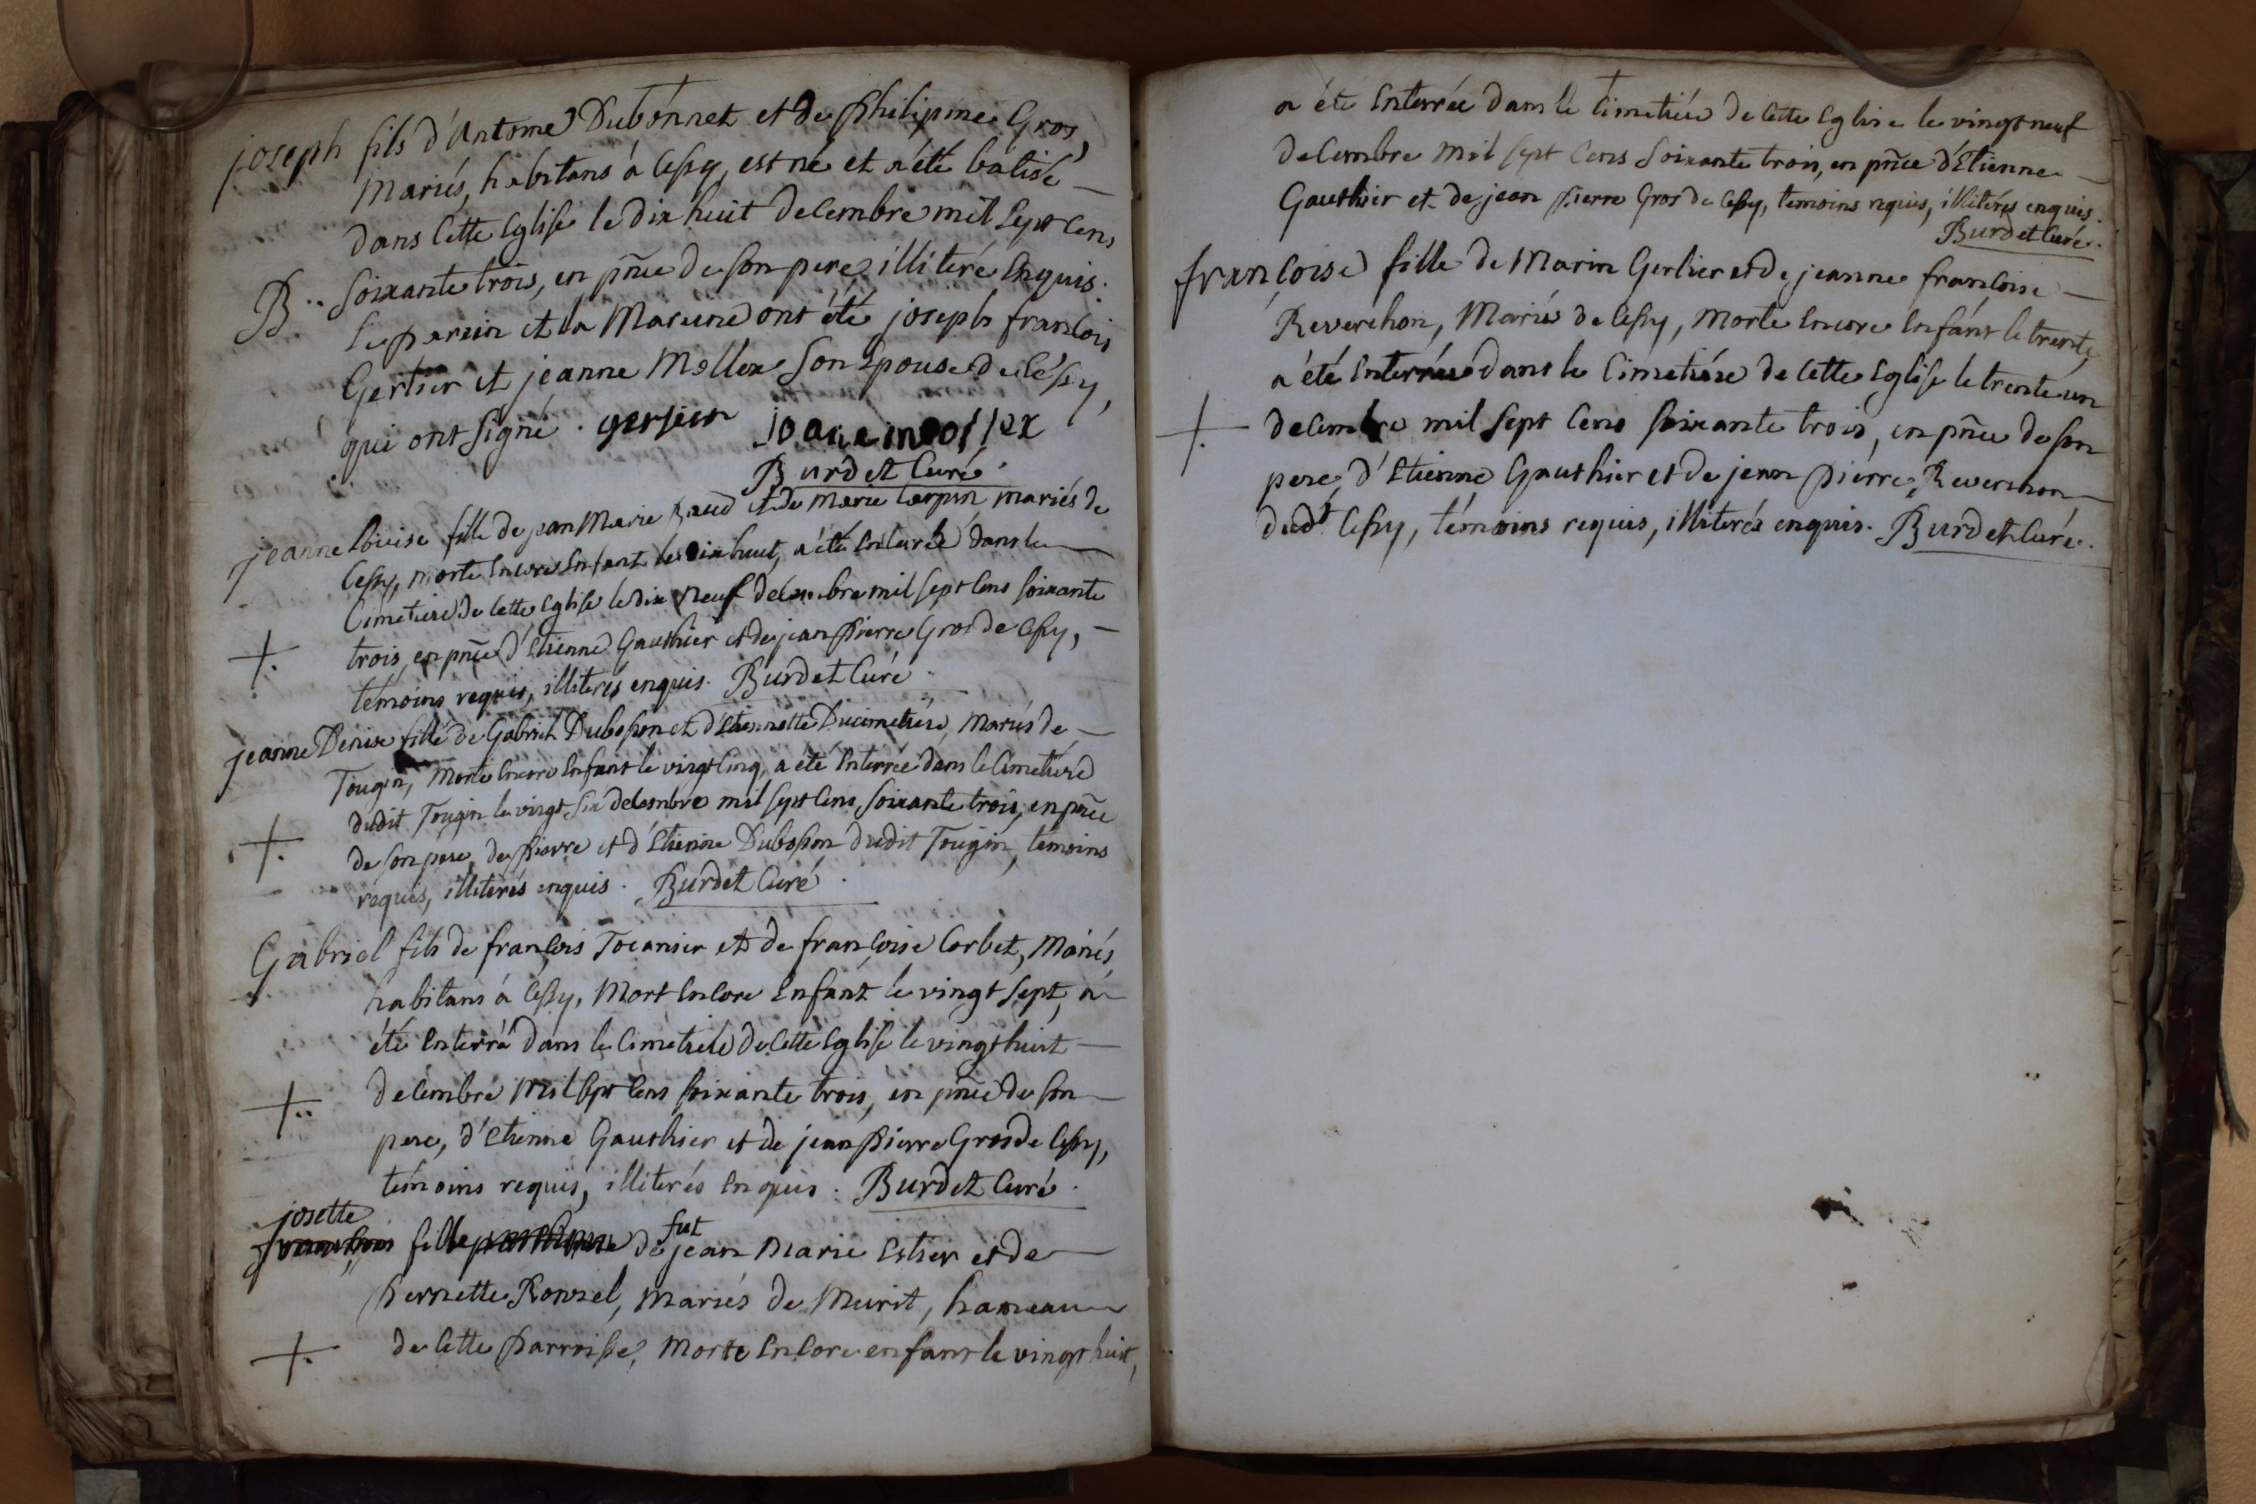 joseph fils d'Antoine Dubonnet et de philipine Gros,
Mariés, habitans á Cessy, est né et a été batisé
dans Cette Eglise le dix huit decembre mil sept Cens
B.. Soixante trois, en pñce de son pere illiteré Enquis.
Le parain et la Maraine ont été joseph françois
Gerlier et jeanne Mollex Son Epouse de Cessy,
qui ont signé. gerlier joane mollex
Burdet Curé.
jeanne Loüise fille de jean Marie Raud et de Marie Carpin mariés de
Cessy, morte Encore Enfant le dix huit, a été Enterrée dans le
Cimetiere de Cette Eglise le dix neuf decembre mil sept Cens soixante
+. trois, en pñce d'Etienne Gauthier et de jean pierre Gros de Cessy,
témoins requis, illiterés enquis. Burdet Curé.
jeanne Denise fille de Gabriel Dubosson et d'Etiennette Ducimetiére, Mariés de
Tougin, Morte Encore Enfant le vingt Cinq, a été Enterrée dans le Cimetiere
+. dudit Tougin le vingt six decembre mil sept Cens soixante trois, en pñce
de son pere, de pierre et d'Etienne Dubosson dudit Tougin, témoins
requis, illiterés enquis. Burdet Curé.
Gabriel fils de françois Tocanier et de françoise Corbet, Mariés,
habitans á Cessy, Mort Encore Enfant le vingt sept, a
été Enterré dans le Cimetiére de Cette Eglise le vingt huit
+.. decembre mil sept Cens soixante trois, en pñce de son
pere, d'Etienne Gauthier et de jean pierre Gros de Cessy,
témoins requis, illiterés Enquis. Burdet Curé.
josette
fille de fut jean Marie Estier et de
pernette Ronzel, Mariés de Murit, hameau
+. de Cette parroisse, Morte Encore enfant le vingt huit,
a été Enterrée dans le Cimetiére de Cette Eglise le vingt neuf
decembre mil sept Cens soixante trois, en pñce d'Etienne
Gauthier et de jean pierre Gros de Cessy, temoins requis, illiterés enquis.
Burdet Curé.
françoise fille de Marin Gerlier et de jeanne françoise
Reverchon, Mariés de Cessy, Morte Encore Enfant le trente,
a été Enterrée dans le Cimetiére de Cette Eglise le trente un
+. decembre mil sept Cens soixante trois, en pñce de son
pere, d'Etienne Gauthier et de jean pierre Reverchon
dudt Cessy, témoins requis, illiterés enquis. Burdet Curé.